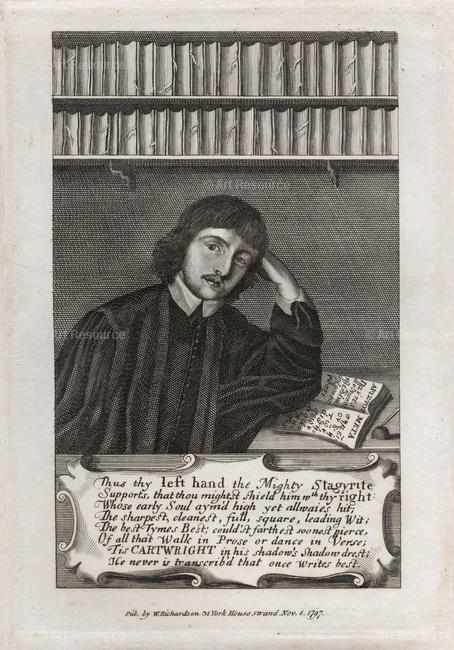 © Art Resource
ARISTOT META
Thus thy left hand the Mighty Stagyrite
Supports, that thou mightst shield him wth thy right:
Whose early Soul aym'd high yet allwaies hit;
The sharpest, cleanest, full, square, leading Wit;
The best Tymes Best; could'st farthest soonest pierce,
Of all that Walk in Prose or dance in Verse;
Tis CARTWRIGHT in his shadow's Shadow drest;
He never is transcrib'd that once Writes best.
Pub. by W. Richardson York House Strand Nov. 1. 1797.